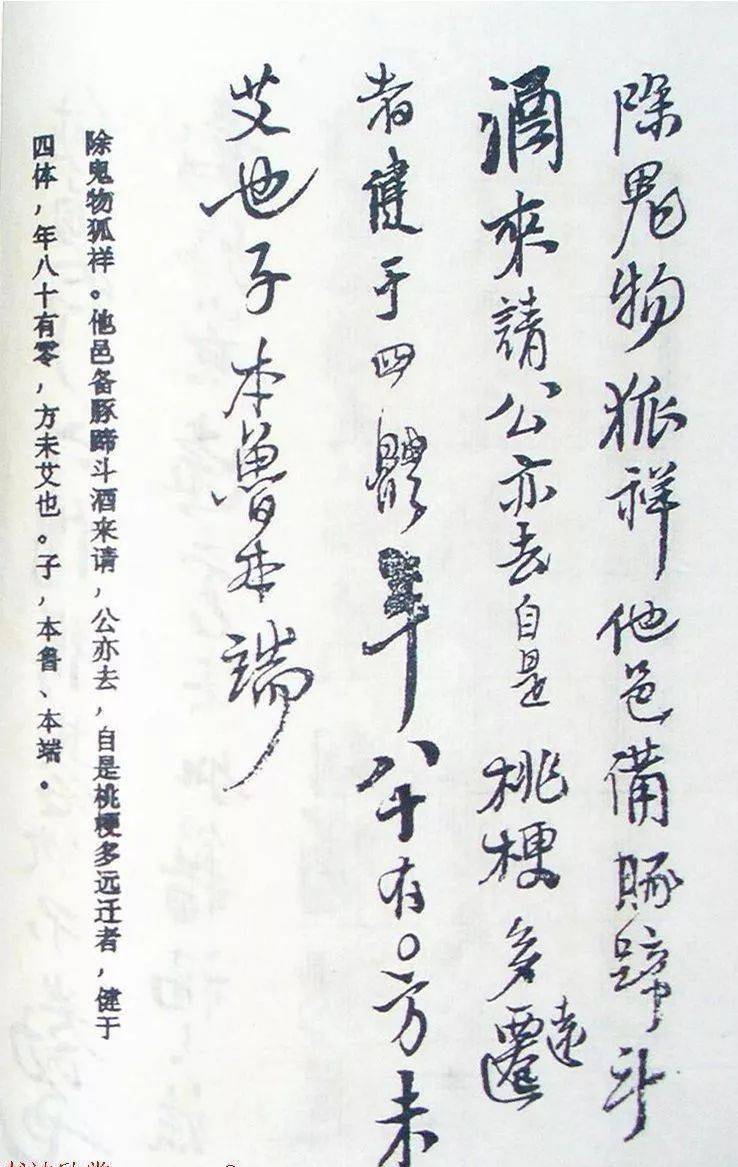 除鬼物狐祥他邑備豚蹄斗
酒來請公亦去自是桃梗多遷
遠
者健于四體年八十有〇方未
艾也子本魯本端
除鬼物狐样。他邑备豚蹄斗酒来请，公亦去，自是桃梗多远迁者，健于
四体，年八十有零，方未艾也。子，本鲁、本端。